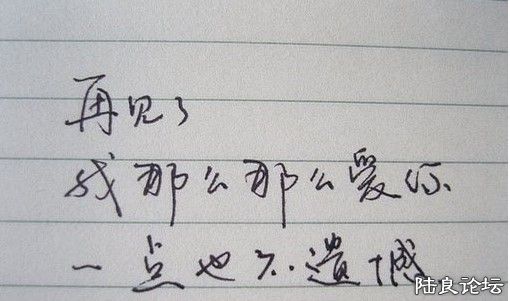 再见了
我那么那么爱你
一点也不遗憾
陆良论坛